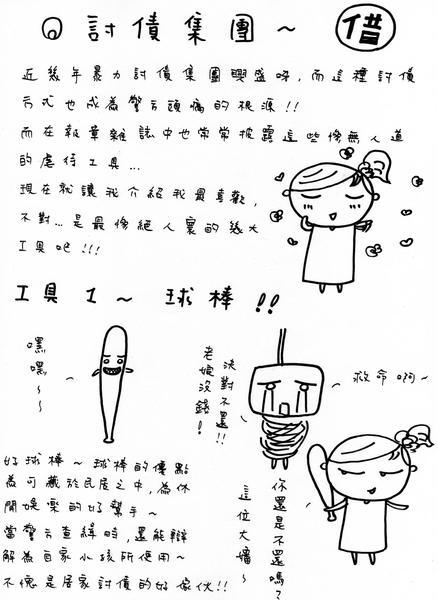 討債集團～ 借
近幾年暴力討債集團興盛呀,而這種討債
方式也成為警方頭痛的根源!!
而在報章雜誌中也常常披露這些慘無人道
的虐待工具...
現在就讓我介紹我最喜歡,
不對...是最慘絕人寰的幾大
工具吧!!!
工具1～ 球棒!!
嘿嘿～～
決對不還!!
老娘沒錢!
救命啊～
好球棒～球棒的優點
為可藏於民居之中,為休
閒娛樂的好幫手～
當警方查緝時,還能辯
解為自家小孩所使用～
不愧是居家討債的好傢伙!!
你還是不還嗎?
這位大嬸～